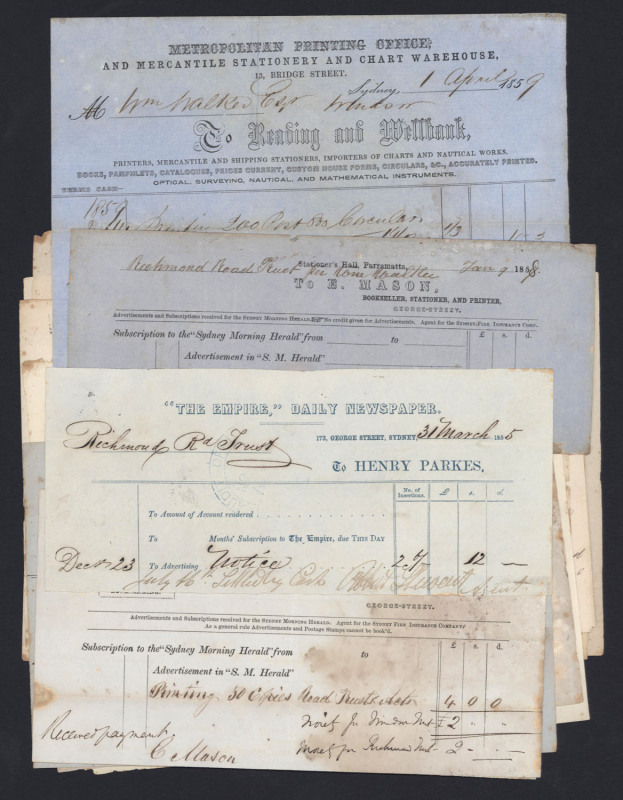 METROPOLITAN PRINTING OFFICE,
AND MERCANTILE STATIONERY AND CHART WAREHOUSE,
13, BRIDGE STREET.
Sydney, 1 April 1859
M Wm Walker Esqr Windsor
To Reading and Wellbank,
PRINTERS, MERCANTILE AND SHIPPING STATIONERS, IMPORTERS OF CHARTS AND NAUTICAL WORKS.
BOOKS, PAMPHLETS, CATALOGUES, PRICES CURRENT, CUSTOM HOUSE FORMS, CIRCULARS, &C., ACCURATELY PRINTED.
OPTICAL, SURVEYING, NAUTICAL, AND MATHEMATICAL INSTRUMENTS.
TERMS CASH—
1859
Printing 200 Post 8vo Circulars
1/3
Stationer's Hall, Parramatta,
Richmond Road Trust Jan 9 1858
TO E. MASON,
BOOKSELLER, STATIONER, AND PRINTER,
GEORGE-STREET.
Advertisements and Subscriptions received for the SYDNEY MORNING HERALD. No credit given for Advertisements. Agent for the SYDNEY FIRE INSURANCE COMP.
Subscription to the "Sydney Morning Herald" from to £ s. d.
Advertisement in "S. M. Herald"
"THE EMPIRE," DAILY NEWSPAPER.
173, GEORGE STREET, SYDNEY, 31 March 1855
Richmond Rd Trust
To HENRY PARKES,
No. of Insertions. £ s. d.
To Amount of Account rendered
To Months' Subscription to The Empire, due THIS DAY
Decr 23 To Advertising Notice 2 12 —
July 16th Settled by Cash Robt Stewart Agent
GEORGE-STREET.
Advertisements and Subscriptions received for the SYDNEY MORNING HERALD. Agent for the SYDNEY FIRE INSURANCE COMPANY.
As a general rule Advertisements and Postage Stamps cannot be book'd.
Subscription to the "Sydney Morning Herald" from to £ s. d.
Advertisement in "S. M. Herald"
Printing 30 Copies Road Trusts Acts 4 0 0
Moiety for Windsor Trust £2 " "
Received payment Moiety for Richmond Trust 2 - " -
C Mason